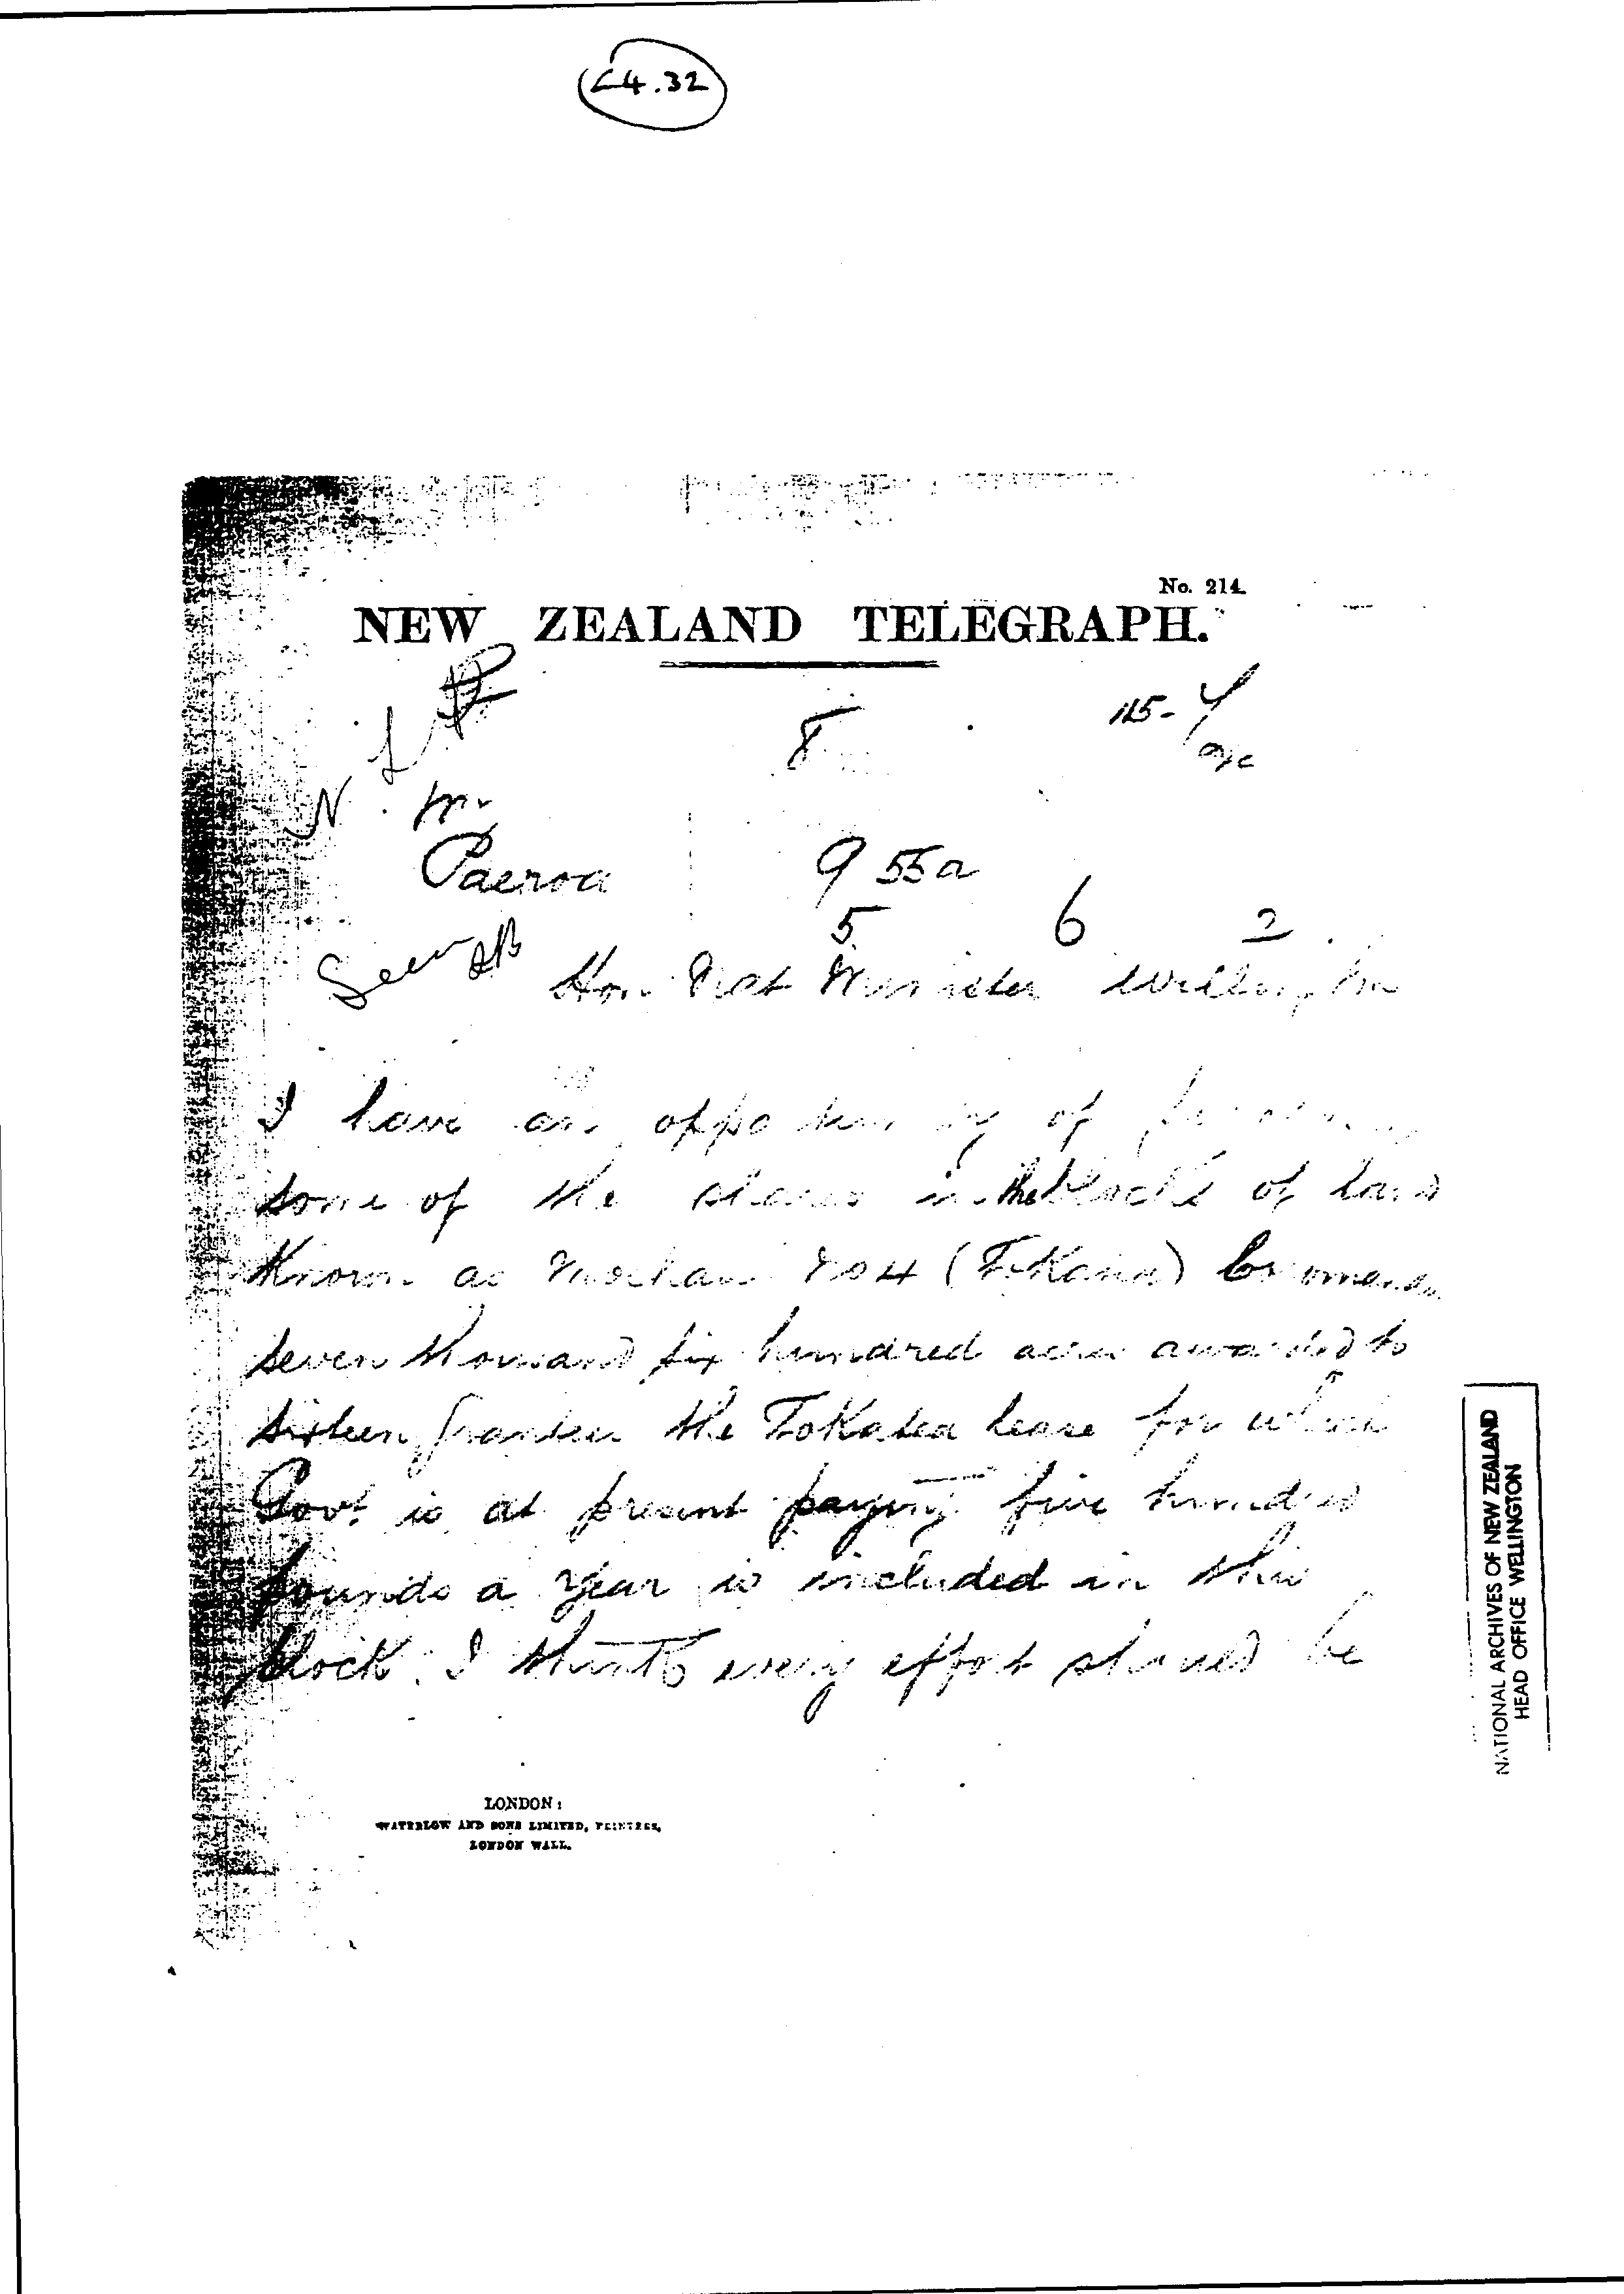 L4.32
No. 214
NEW ZEALAND TELEGRAPH.
8
115-
N. m.
Paeroa
9 55a
5 6 2
Hon. Nat Minister Wellington
I have an opportunity of
some of the shares in the blocks of land
Known as Moehau No 4
seven thousand six hundred acres awarded to
sixteen grantees the Tokatea lease for which
Govt is at present paying five hundred
pounds a year is included in this
block. I think every effort should be
LONDON:
WATERLOW AND SONS LIMITED, PRINTERS,
LONDON WALL.
NATIONAL ARCHIVES OF NEW ZEALAND
HEAD OFFICE WELLINGTON